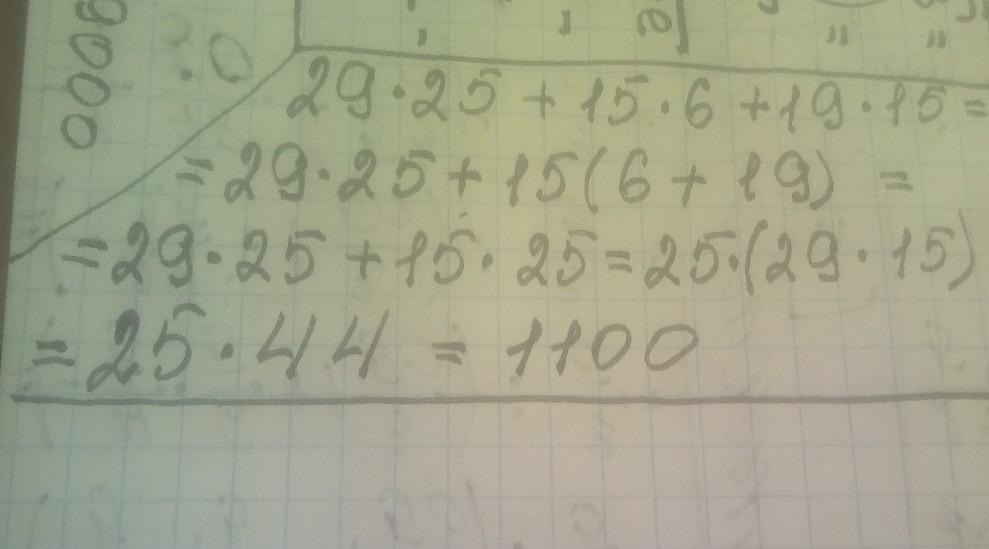 8000
29·25 + 15·6 + 19·15 =
= 29·25 + 15(6 + 19) =
= 29·25 + 15·25 = 25·(29·15)
= 25·44 = 1100